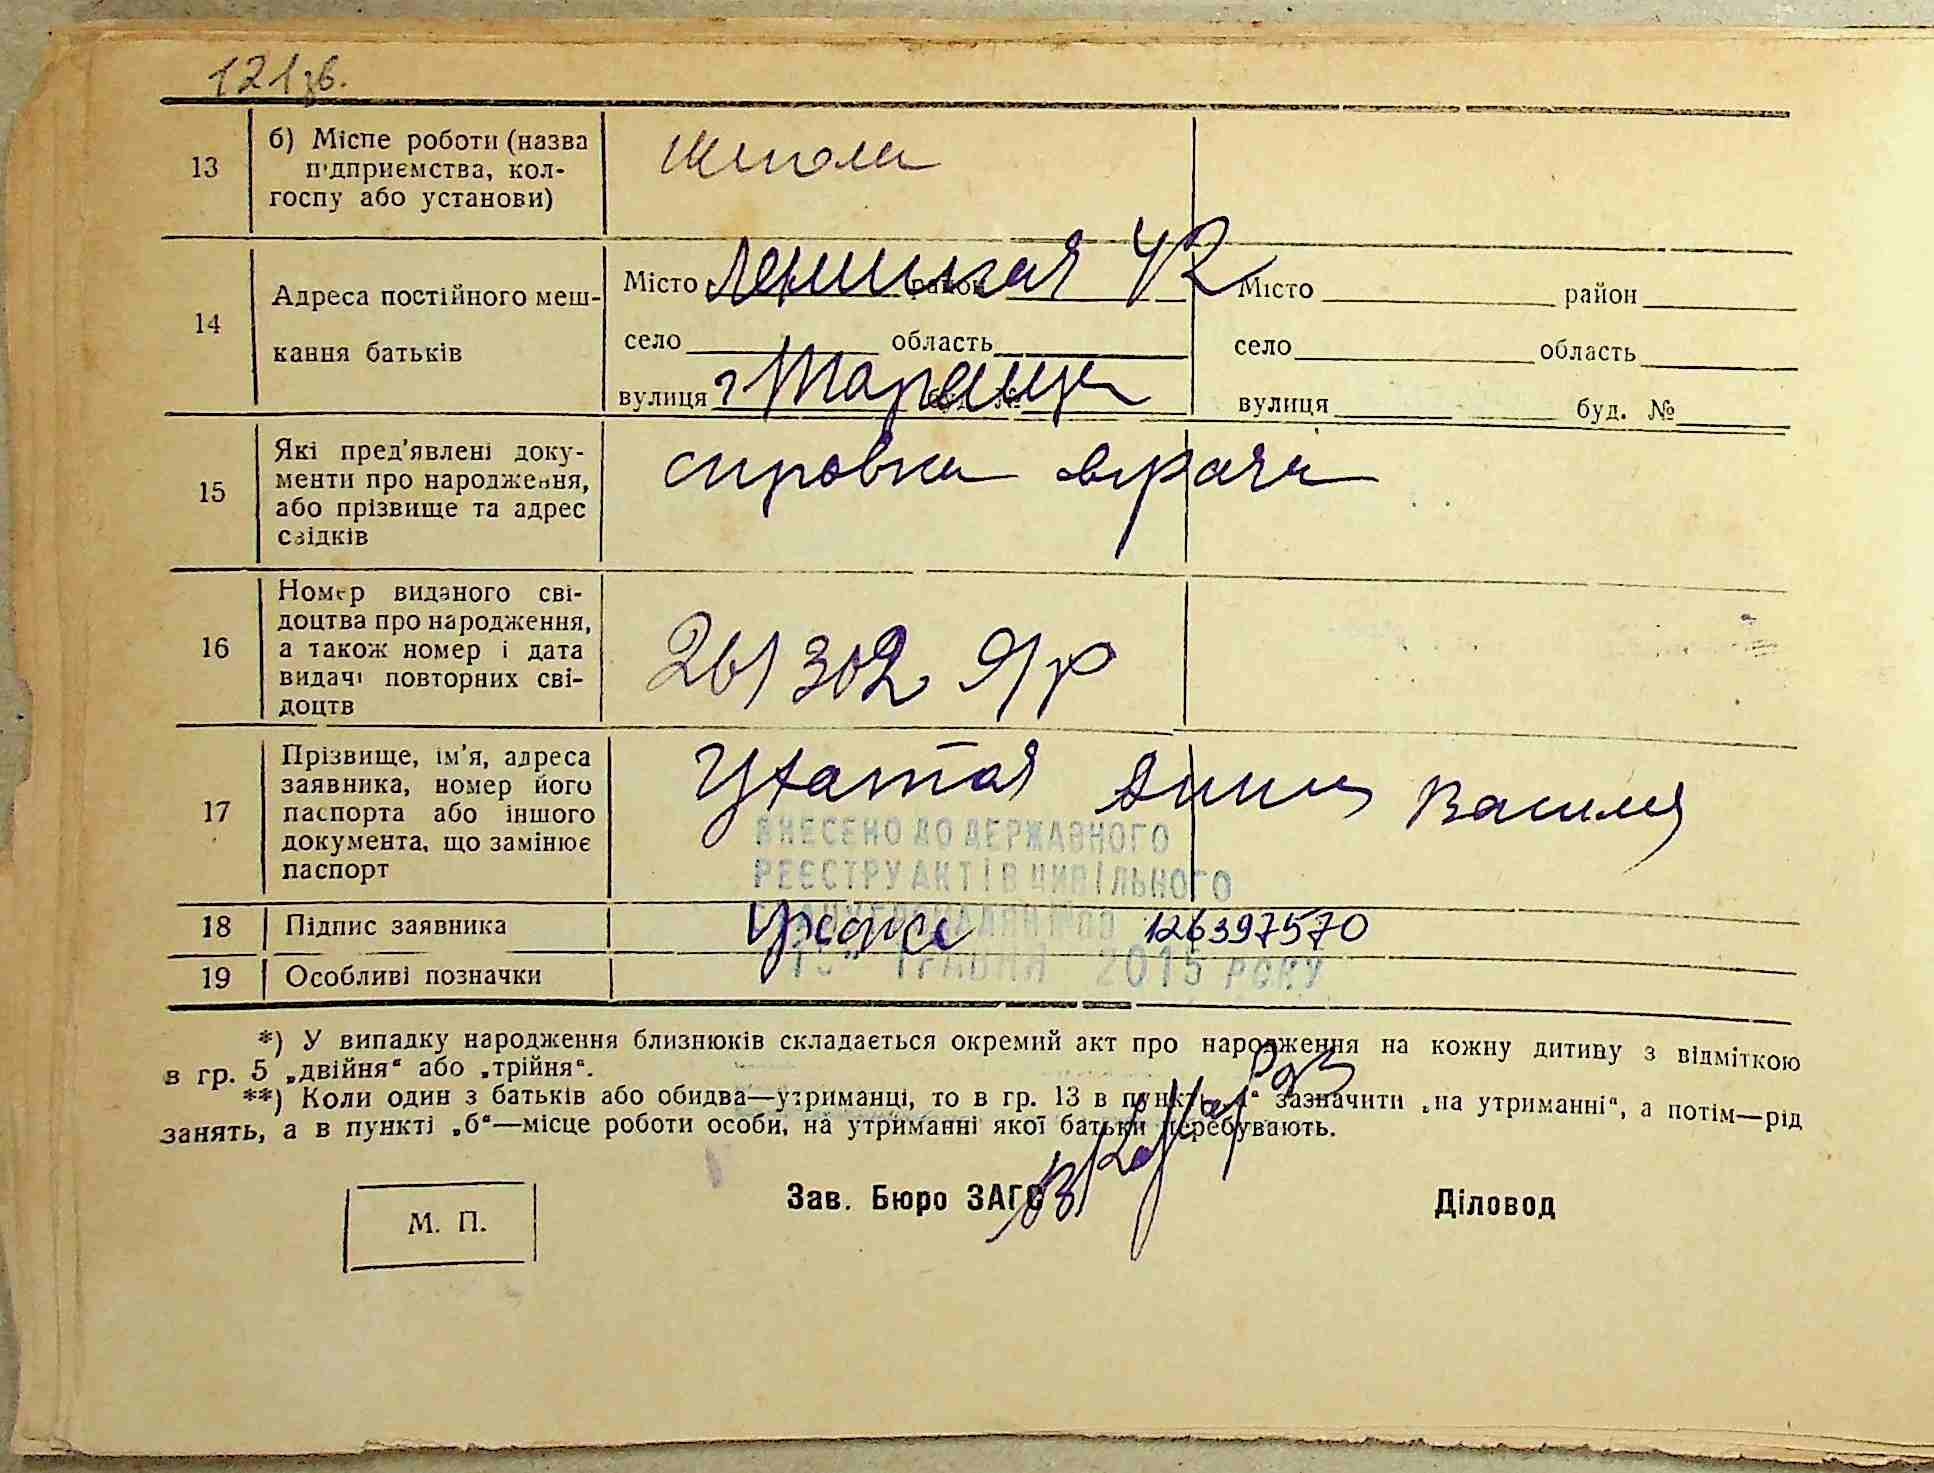 121зв.
13
б) Місце роботи (назва
підприємства, кол-
госпу або установи)
школа
14
Адреса постійного меш-
кання батьків
Місто район
село область
вулиця буд. №
Ленинская 42
г Тараща
Місто район
село область
вулиця буд. №
15
Які пред'явлені доку-
менти про народження,
або прізвище та адрес
свідків
справка врача
16
Номер виданого сві-
доцтва про народження,
а також номер і дата
видачі повторних сві-
доцтв
261302
17
Прізвище, ім'я, адреса
заявника, номер його
паспорта або іншого
документа, що замінює
паспорт
Ухатая Анна Василя
ВНЕСЕНО ДО ДЕРЖАВНОГО
РЕЄСТРУ АКТІВ ЦИВІЛЬНОГО
СТАНУ ГРОМАДЯН №00 126397570
ТРАВНЯ 2015 РОКУ
18
Підпис заявника
19
Особливі позначки
*) У випадку народження близнюків складається окремий акт про народження на кожну дитину з відміткою
в гр. 5 „двійня“ або „трійня“.
**) Коли один з батьків або обидва—утриманці, то в гр. 13 в пункті „а“ зазначити „на утриманні“, а потім—рід
занять, а в пункті „б“—місце роботи особи, на утриманні якої батьки перебувають.
М. П.
Зав. Бюро ЗАГС
Діловод